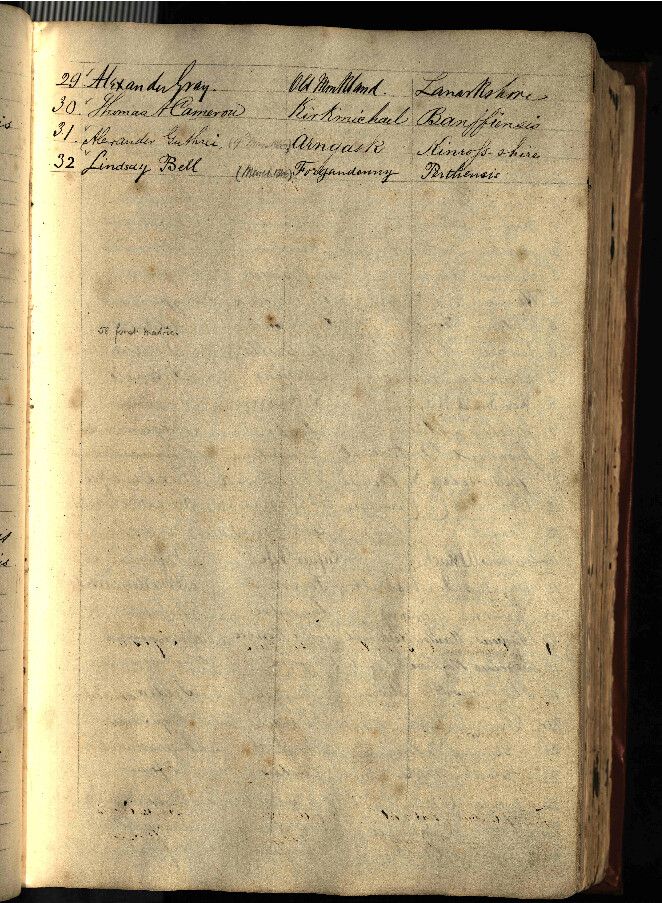 29 Alexander Gray. Old Monkland. Lanarkshire
30 Thomas A Cameron Kirkmichael Banffiensis
31 Alexander Guthrie Arngask Kinross-shire
32 Lindsay Bell Forgandenny Perthensis
58 first matric.